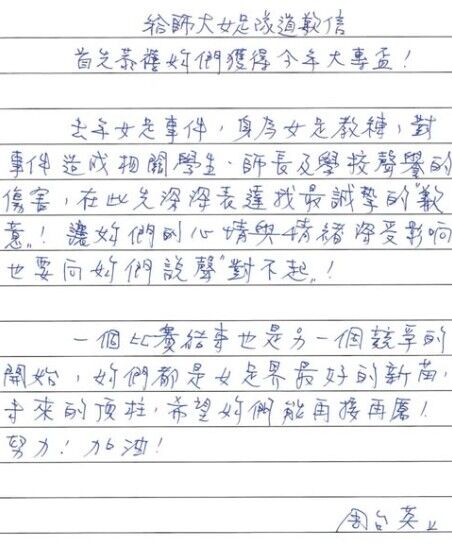 給師大女足隊道歉信
首先恭禧妳們獲得今年大專盃！
去年女足事件，身為女足教練，對
事件造成相關學生、師長及學校聲譽的
傷害，在此先深深表達我最誠摯的"歉
意"！讓妳們的心情與情緒深受影响
也要向妳們說聲"對不起"！
一個比賽結束也是另一個競爭的
開始，妳們都是女足界最好的新苗，
未來的頂柱，希望妳們能再接再厲！
努力！加油！
周台英上